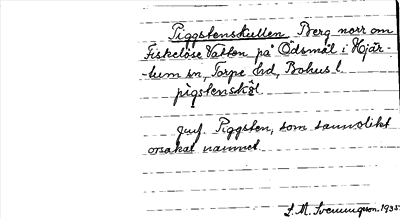 Piggstenskullen Berg norr om
Fiskelöse Vatten på Ödsmål i Hjär-
tum sn, Torpe hd, Bohus l.
pigstenskӓl
Jmf. Piggsten, som sannolikt
orsakat namnet
L. M. Svenungsson. 1935